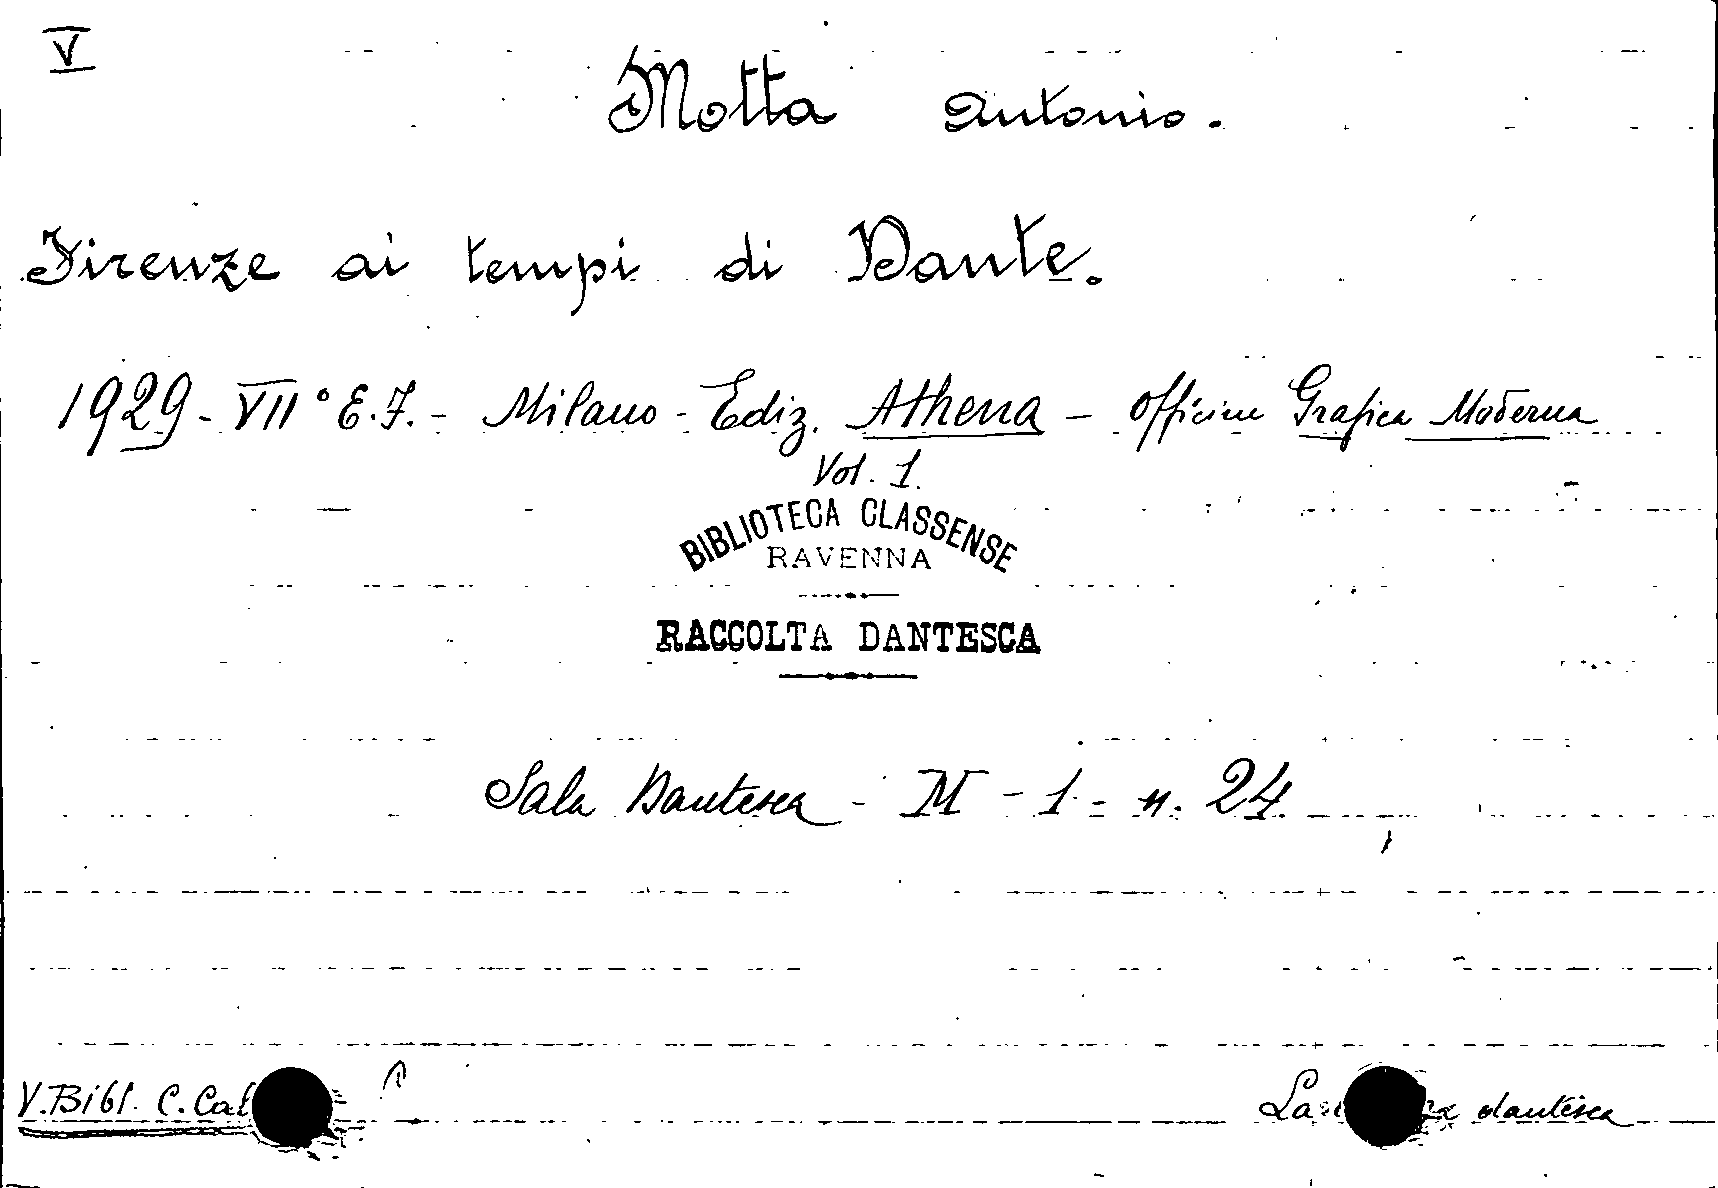 V
Motta Antonio.
Firenze ai tempi di Dante.
1929 - VII° E.F. - Milano - Ediz. Athena - Officine Grafica Moderna
Vol. 1.
BIBLIOTECA CLASSENSE
RAVENNA
RACCOLTA DANTESCA
Sala Dantesca - M - 1 - n. 24.
V. Bibl. C. dantesca